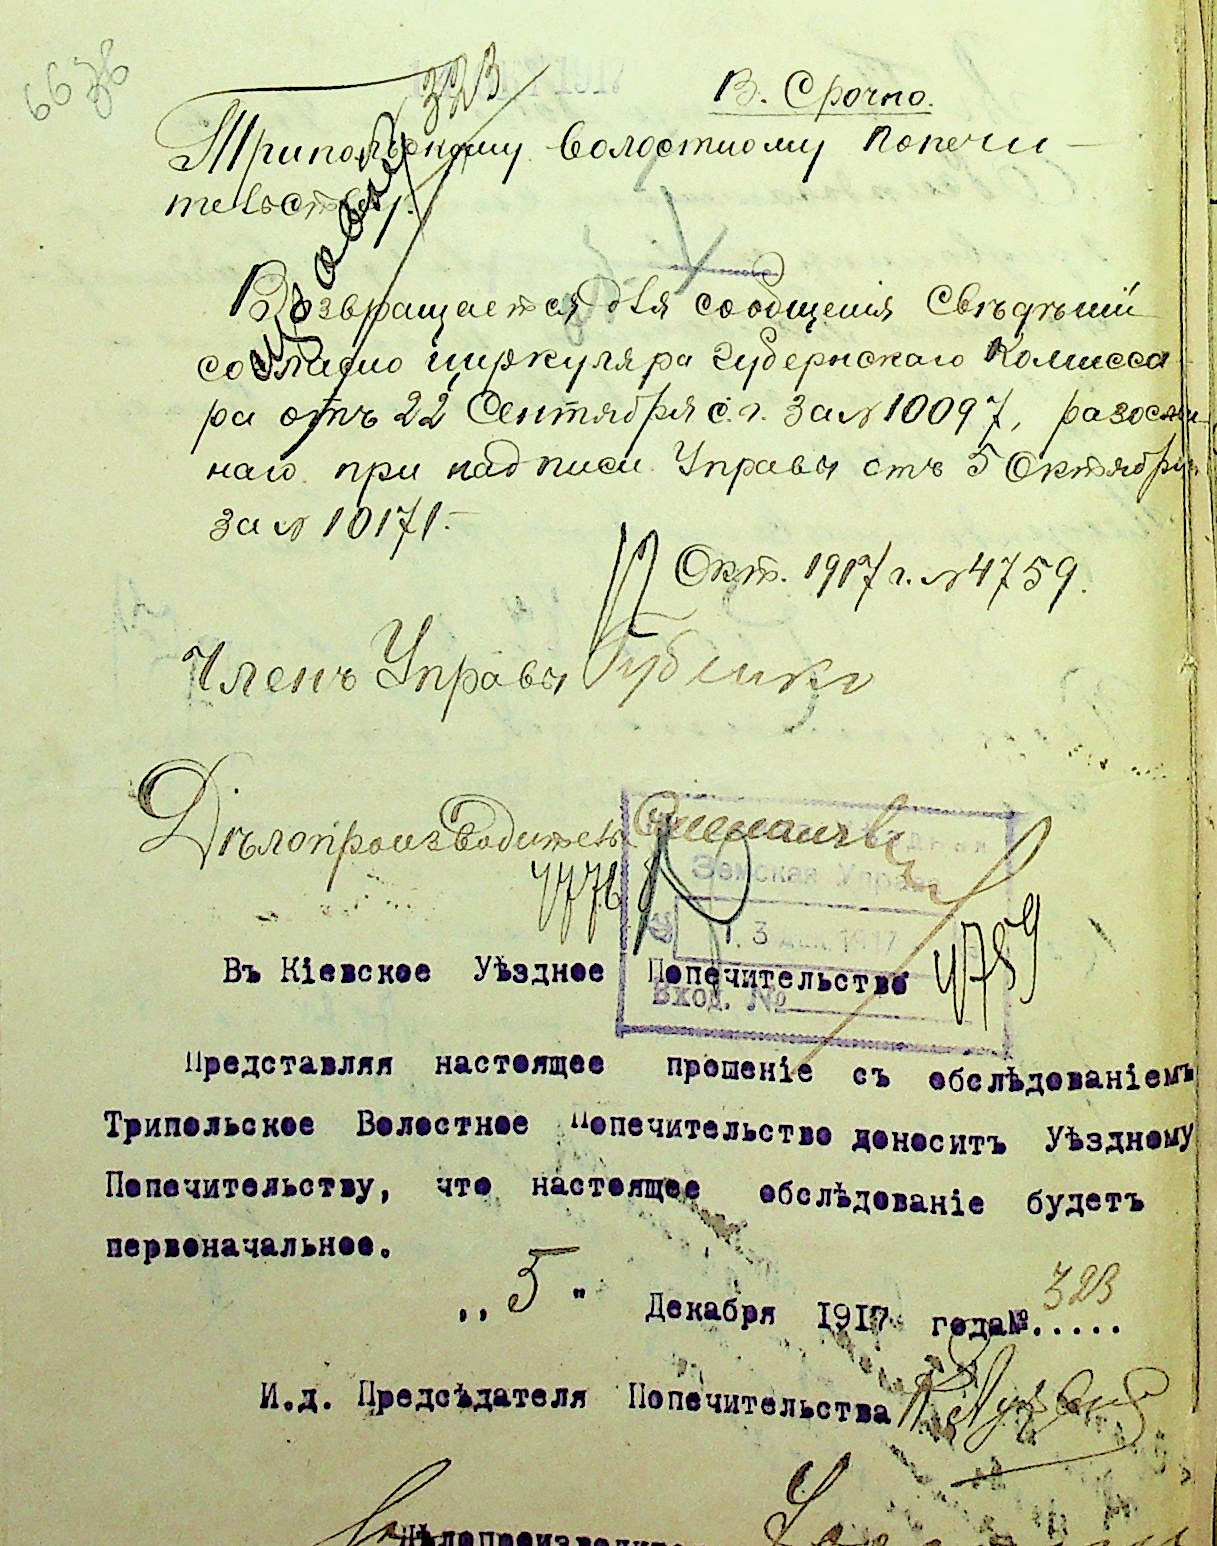 6638
323
В. Срочно.
Трипольскому Волостному Попечи-
тельству.
Возвращается для сообщенія Свѣдѣній
согласно циркуляра Губернскаго Комисса
ра отъ 22 Сентября с. г. за № 10097, разослан-
наго при надписи Управы отъ 5 Октября
за № 10171.-
Окт. 1917 г. № 4759.
Членъ Управы Губенко
Дѣлопроизводитель
Земская Управа
3 дек. 1917
Вход. №
4759
Въ Кіевское Уѣздное Попечительство
Представляя настоящее прошеніе съ обслѣдованіемъ
Трипольское Волостное Попечительство доноситъ Уѣздному
Попечительству, что настоящее обслѣдованіе будетъ
первоначальное.
„ 5 " Декабря 1917 года №..... 323
И.д. Предсѣдателя Попечительства